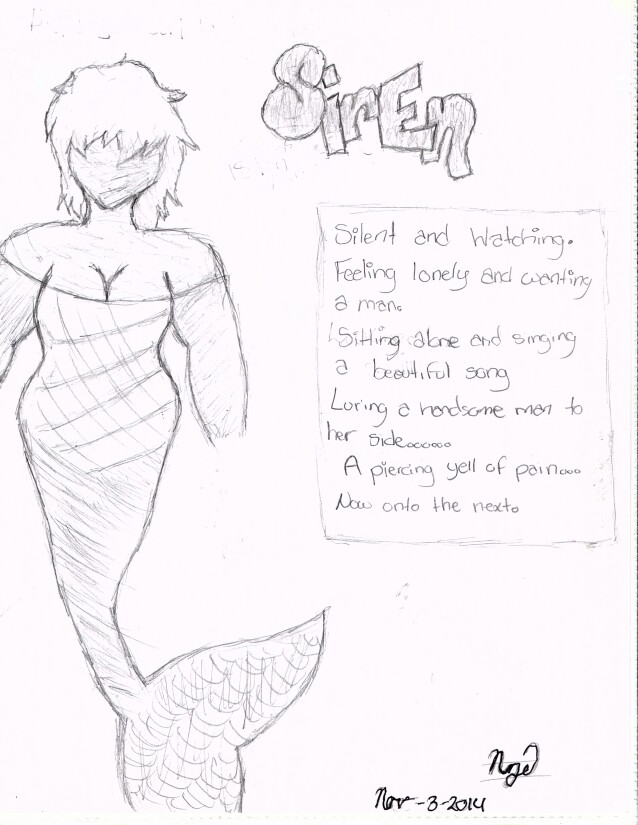 SirEn
Silent and Watching.
Feeling lonely and wanting
a man.
Sitting alone and singing
a beautiful song
Luring a handsome man to
her side......
A piercing yell of pain...
Now onto the next.
Nov-3-2014